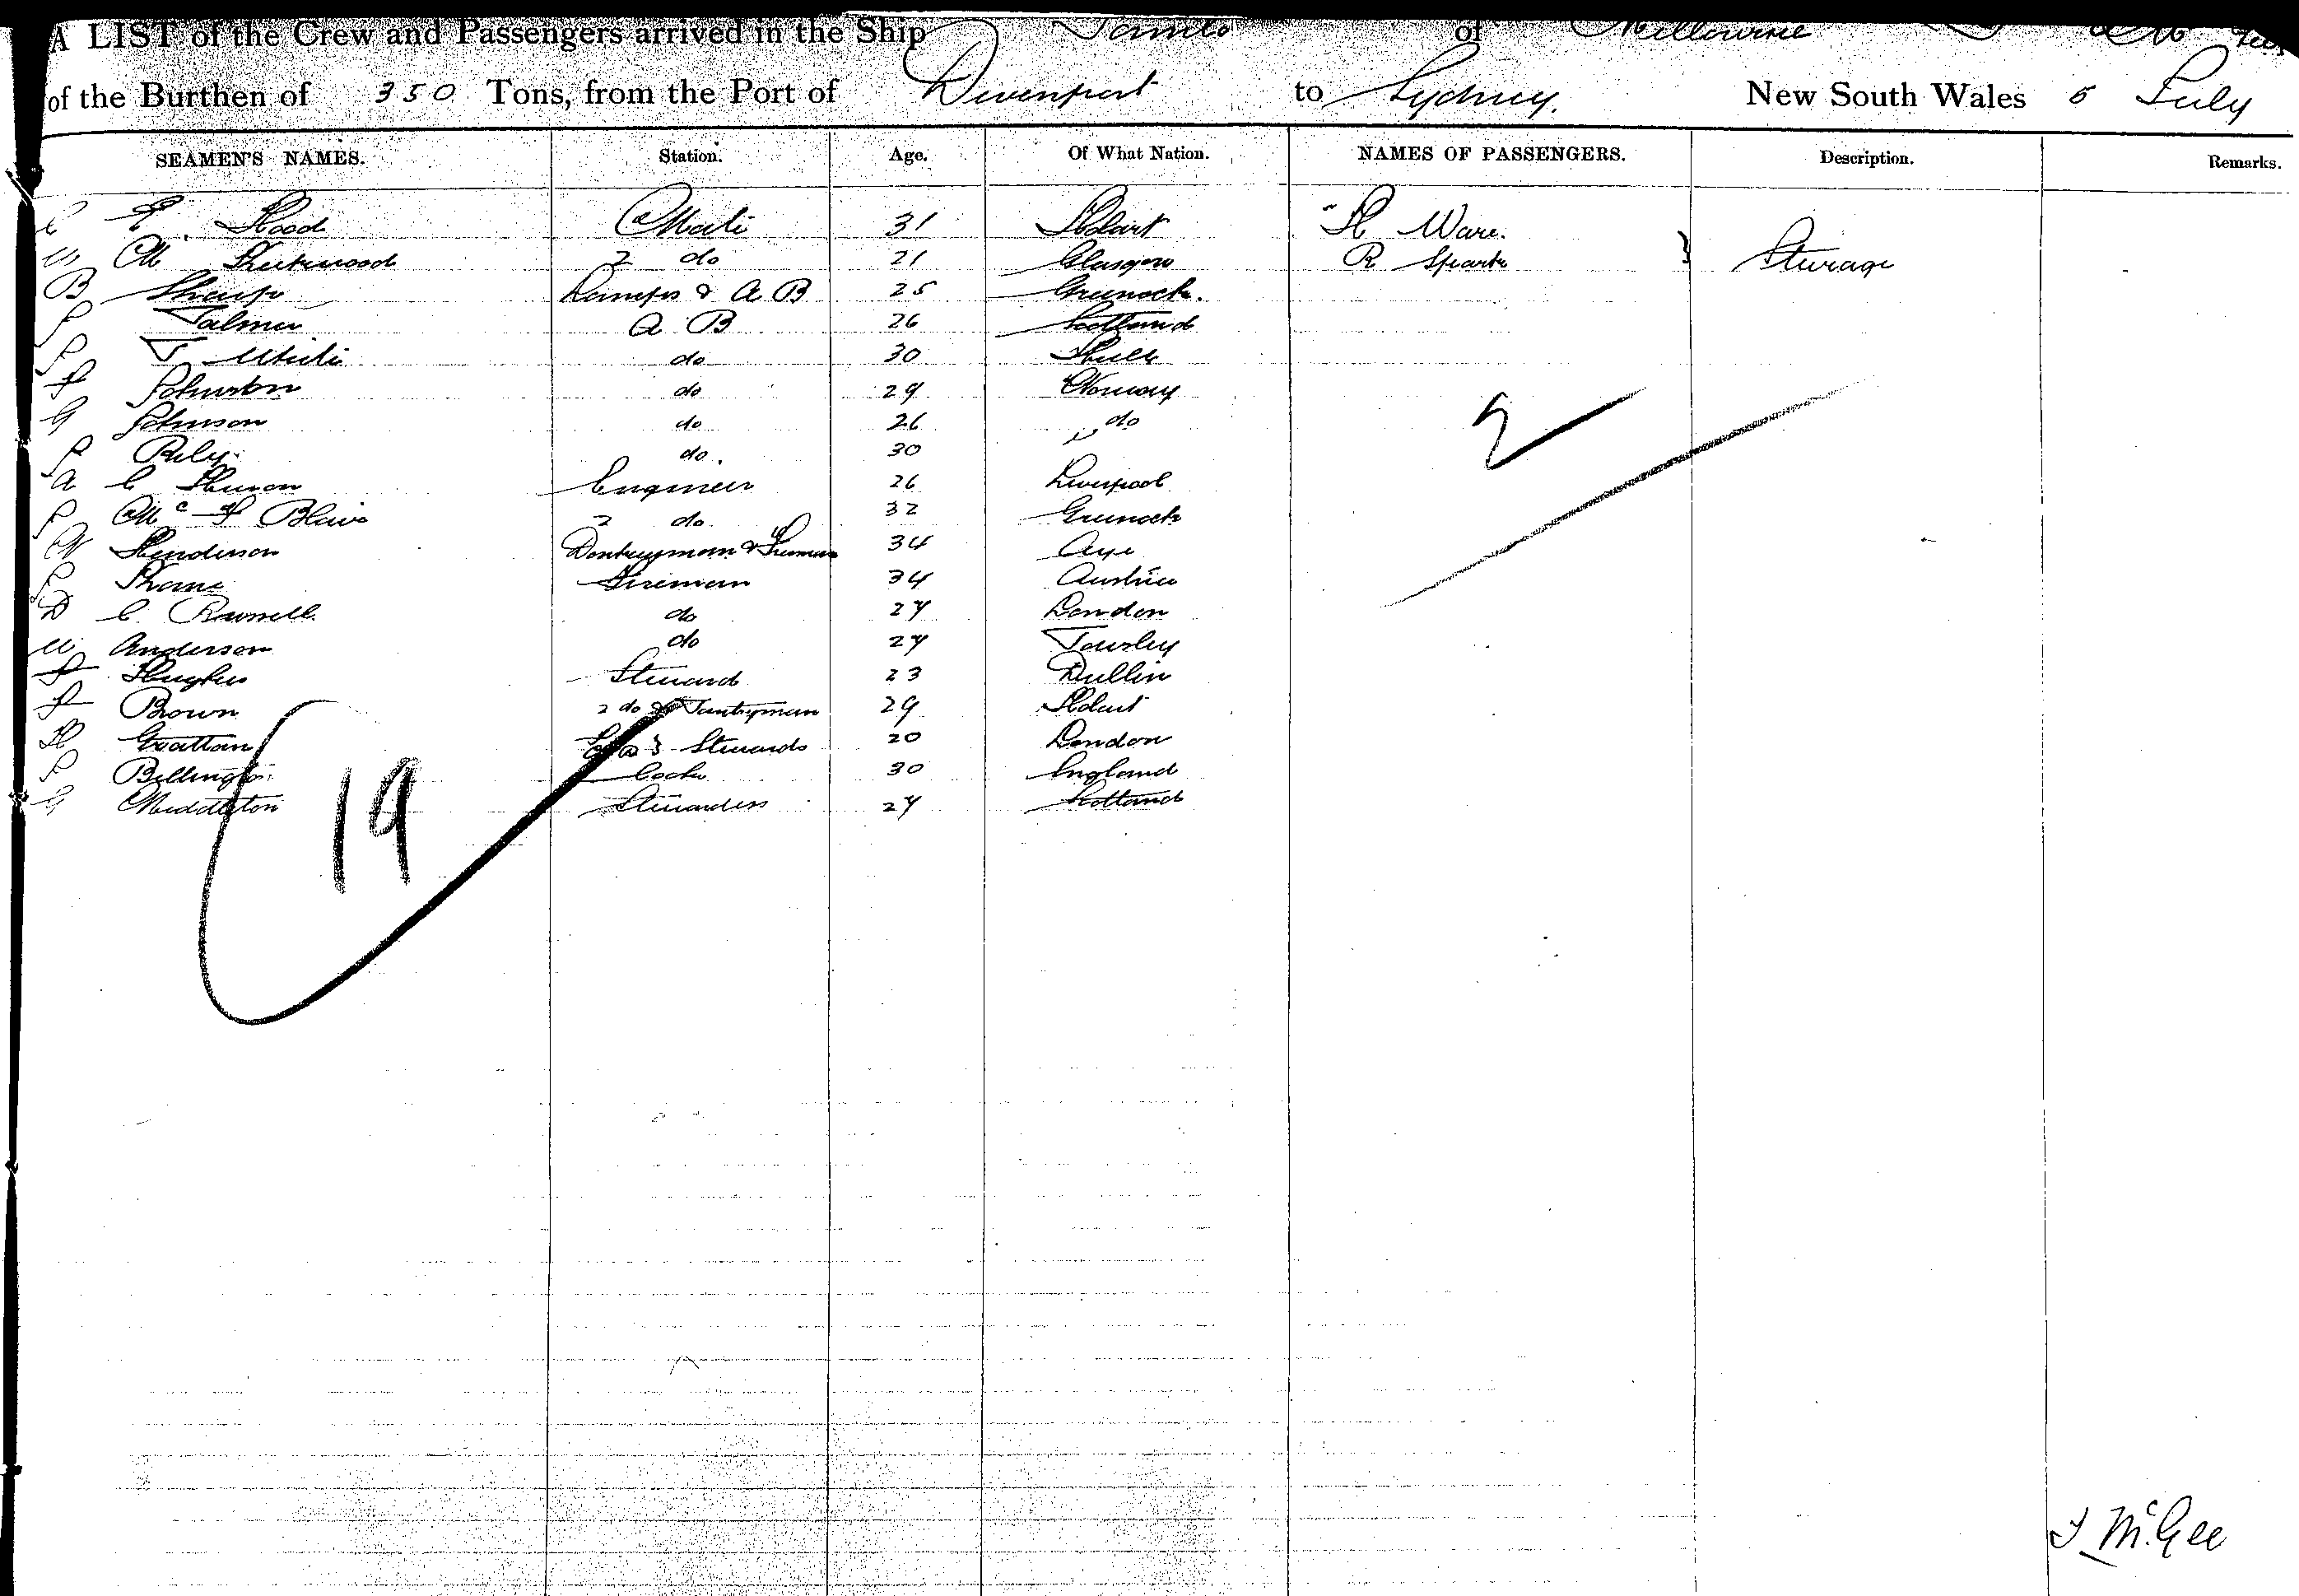 A LIST of the Crew and Passengers arrived in the Ship of Melbourne
of the Burthen of 350 Tons, from the Port of Devenport to Sydney. New South Wales 5 July
SEAMEN'S NAMES. Station. Age. Of What Nation. NAMES OF PASSENGERS. Description. Remarks.
E Hood Mate 31 Hobart H Ware.
M 2 do 21 Glasgow R } Sturage
B Sharp Lamps & A B 25 Greenock.
Palmer A B 26 Scotland
J T White do 30 Hull
Johnston do 29 Norway
G Johnson do 26 do
J Rily do. 30
A C Engineer 26 Liverpool
J Blair 2 do 32 Greenock
N Henderson Donkeyman & Fireman 34
Fireman 34 Austria
D C Russell do 27 London
Anderson do 27
Hughes Steward 23 Dublin
Brown 2 do & Pantryman 29 Hobart
H Grattan Stewards 20 London
J Billington Cook 30 England
G Middleton Stewardess 27 Scotland
2
19
J McGee